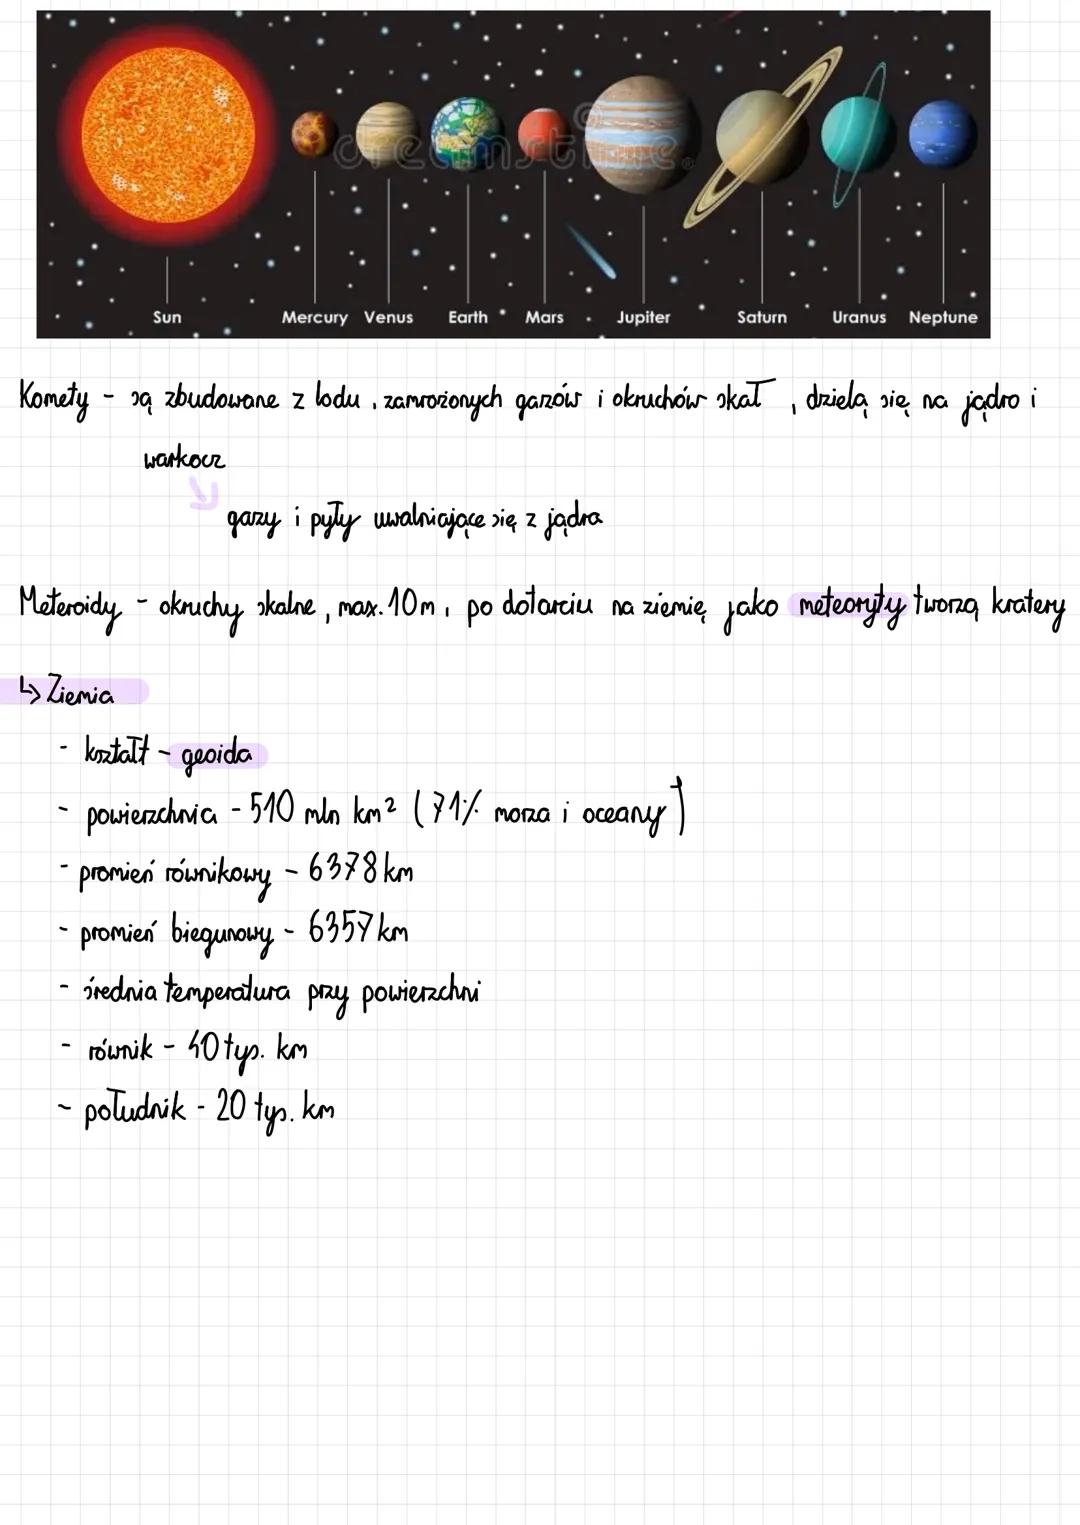 dreamstime®
Sun Mercury Venus Earth Mars Jupiter Saturn Uranus Neptune
Komety - są zbudowane z lodu, zamrożonych gazów i okruchów skał, dzielą się na jądro i
warkocz
gazy i pyły uwalniające się z jądra
Meteroidy - okruchy skalne, max. 10m, po dotarciu na ziemię jako meteoryty tworzą kratery
↳ Ziemia
- kształt - geoida
- powierzchnia - 510 mln km² (71% morza i oceany)
- promień równikowy - 6378 km
- promień biegunowy - 6357 km
- średnia temperatura przy powierzchni
- równik - 40 tys. km
- południk - 20 tys. km